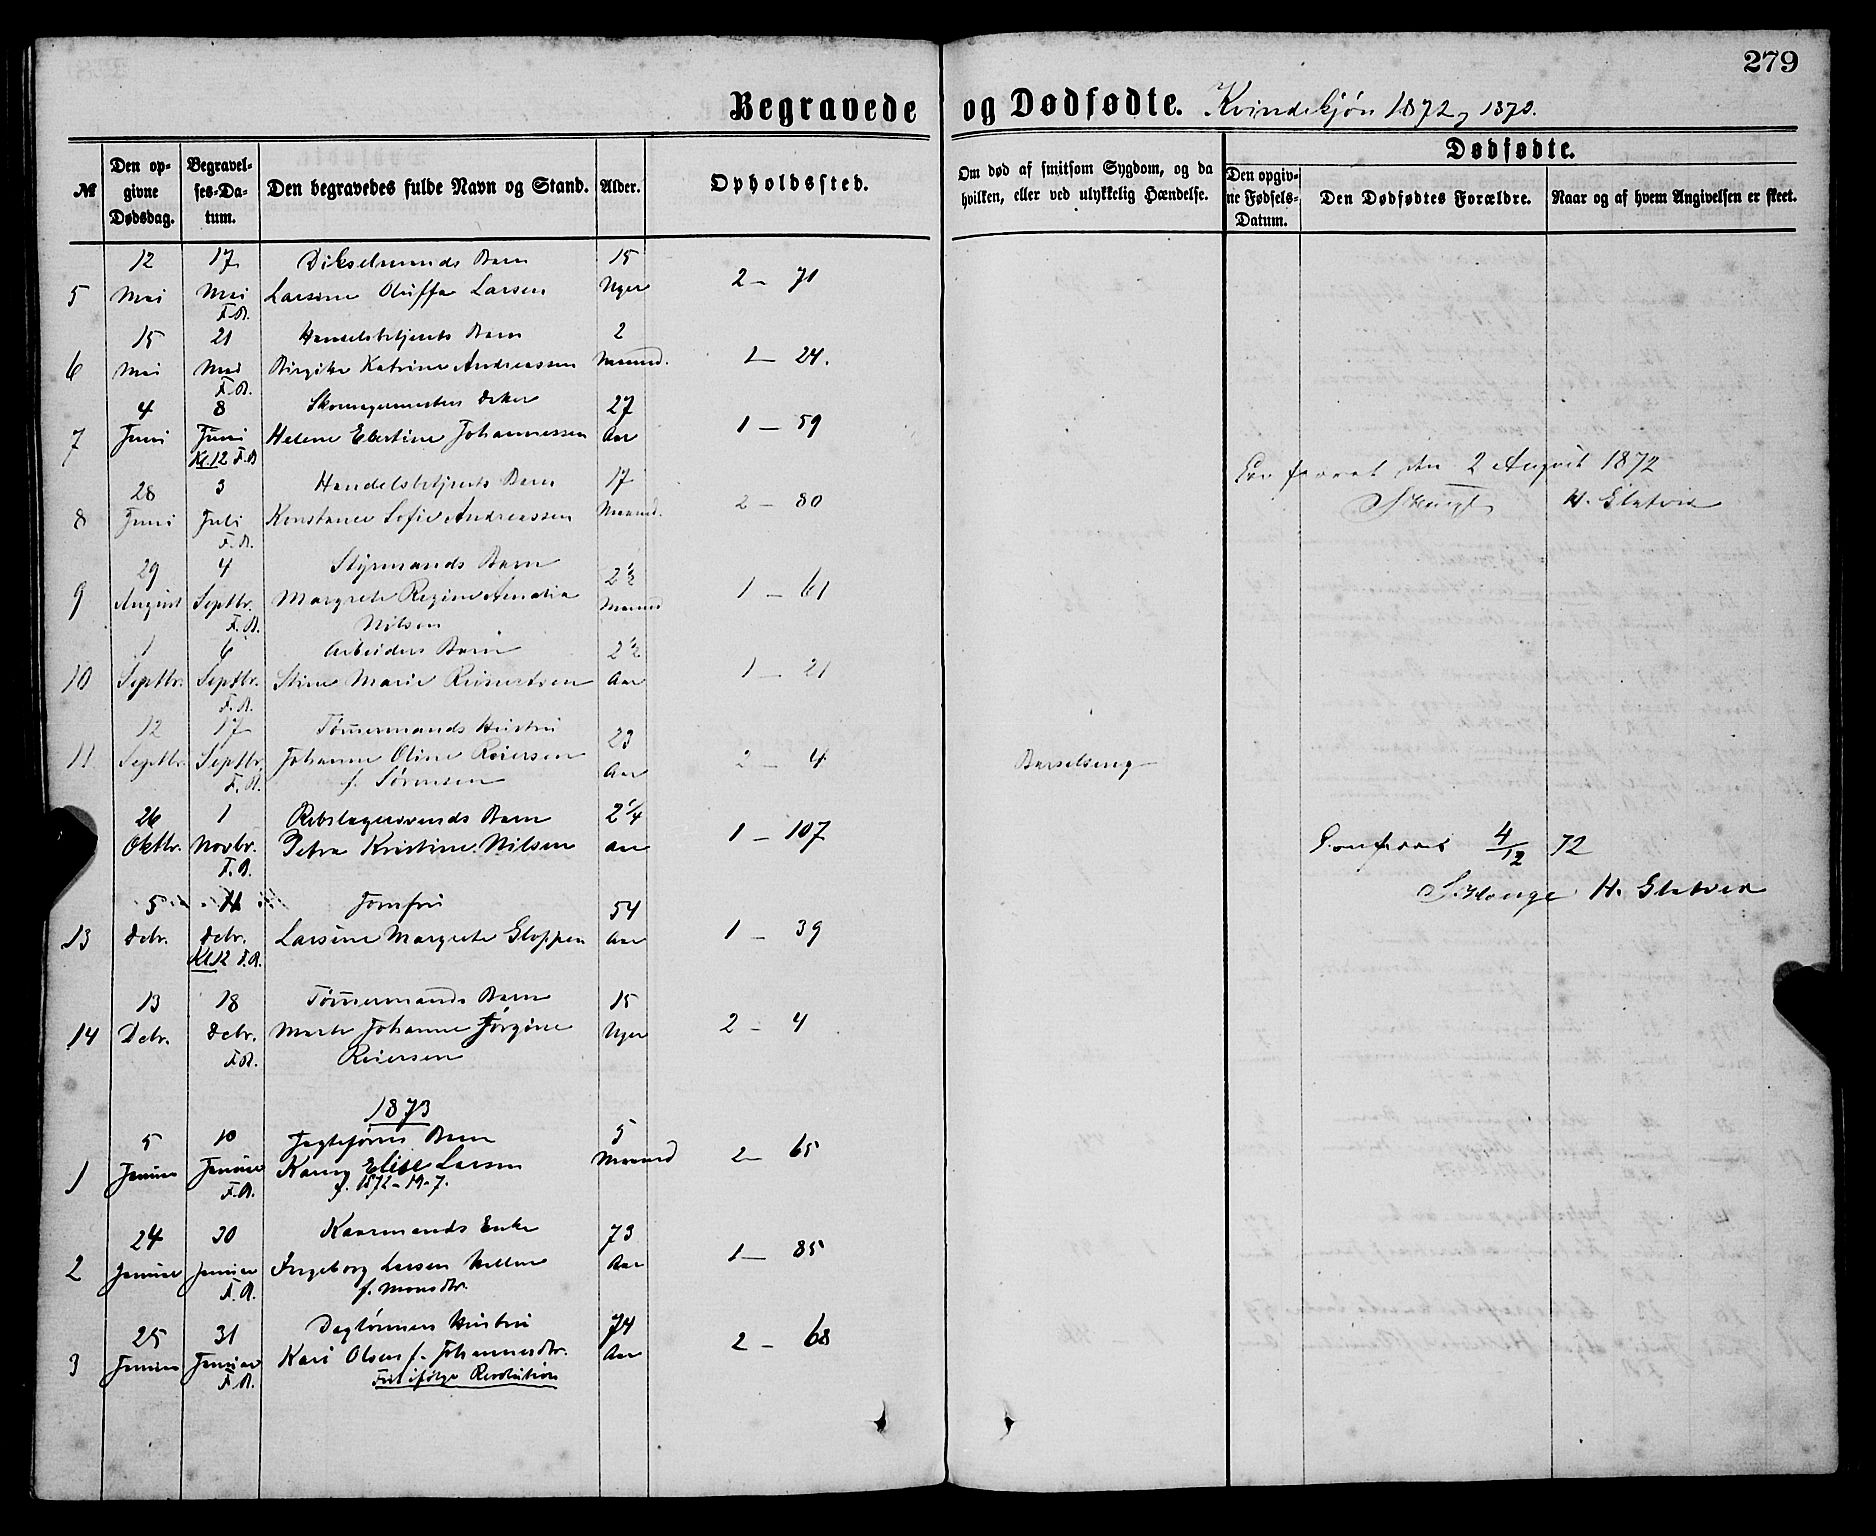 279
Begravede og Dødfødte. Kvindekjøn 1872, 1873.
№
Den opgivne Dødsdag.
Begravelses-Datum.
Den begravedes fulde Navn og Stand.
Alder.
Opholdssted.
Om død af smitsom Sygdom, og da hvilken, eller ved ulykkelig Hændelse.
Dødfødte.
Den opgivne Fødsels-Datum.
Den Dødfødtes Forældre.
Naar og af hvem Angivelsen er skeet.
12 17 Barn 15
5 Mai Mai Larsine Oluffa Larsen Uger 2 – 71
F.B.
15 21 Handelsbetjents Barn 2
6 Mai Mai Birgithe Katrine Andreassen Maaned. 1 – 24.
F.B.
4 8 Skomagermesters 27
7 Juni Juni Helene Elertine Johannessen Aar 1 – 59
Kl. 12 F.B
28 3 Handelsbetjents Barn 17
8 Juni Juli Konstance Sofie Andreassen Maaned. 2 – 80
F.B.
den 2 August 1872
29 4 Styrmands Barn 2½
9 August Septbr. Margrete Regine Amalia Maaned 1 – 61
F.B. Nilsen
1 6 Arbeiders Barn 2½
10 Septbr. Septbr. Stine Marie Reinertsen Aar 1 – 21
F.B.
12 17 Tømmermands Hustru 23
11 Septbr. Septbr. Johanne Oline Reiersen Aar 2 – 4 Barselseng
F.B. f. Sørensen
26 1 Rebslagersvends Barn 2¼
Oktbr. Novbr. Petra Kristine Nilsen aar 1 – 107
F.B.
4/12 72
5 11 Jomfru 54
13 Debr. Debr. Larsine Margrete Gloppen Aar 1 – 39
Kl 12 F.B.
13 18 Tømmermands Barn 15
14 Debr. Debr. Marte Johanne Jørgine Uger 2 – 4
F.B. Reiersen
1873
5 10 Jagteførers Barn 5
1 Januar Januar Elise Larsen Maaned 2 – 65
F.B. f. 1872–19–7.
24 30 Kaarmands Enke 73
2 Januar Januar Ingeborg Larsen Aar 1 – 85
F.B. f. Monsdtr.
25 31 Hustru 74
3 Januar Januar Kari Olsen f. Johannesdtr. Aar 2 – 68
F.B. Frit ifølge Resolution